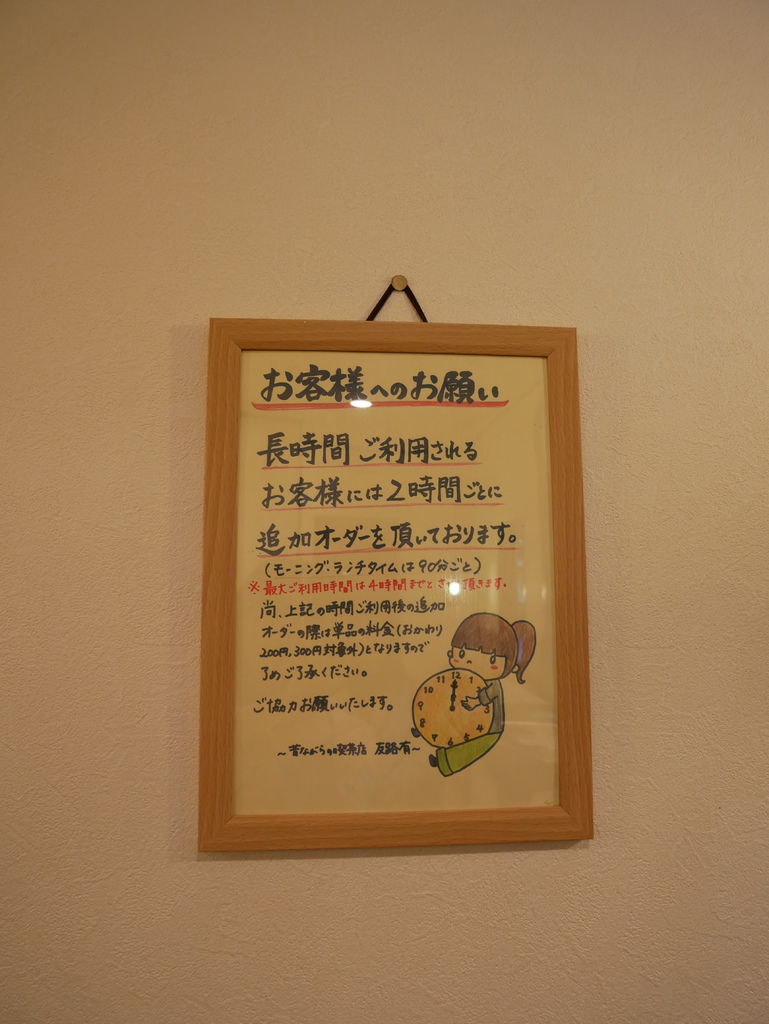 お客様へのお願い
長時間ご利用される
お客様には2時間ごとに
追加オーダーを頂いております。
(モーニング・ランチタイムは90分ごと)
※最大ご利用時間は4時間までとさせ頂きます。
尚、上記の時間ご利用後の追加
オーダーの際は単品の料金(おかわり
200円,300円対象外)となりますので
予めご了承ください。
ご協力お願いいたします。
～昔ながらの喫茶店 友路有～
11 12 1
10 2
9
8 4
7 6 5